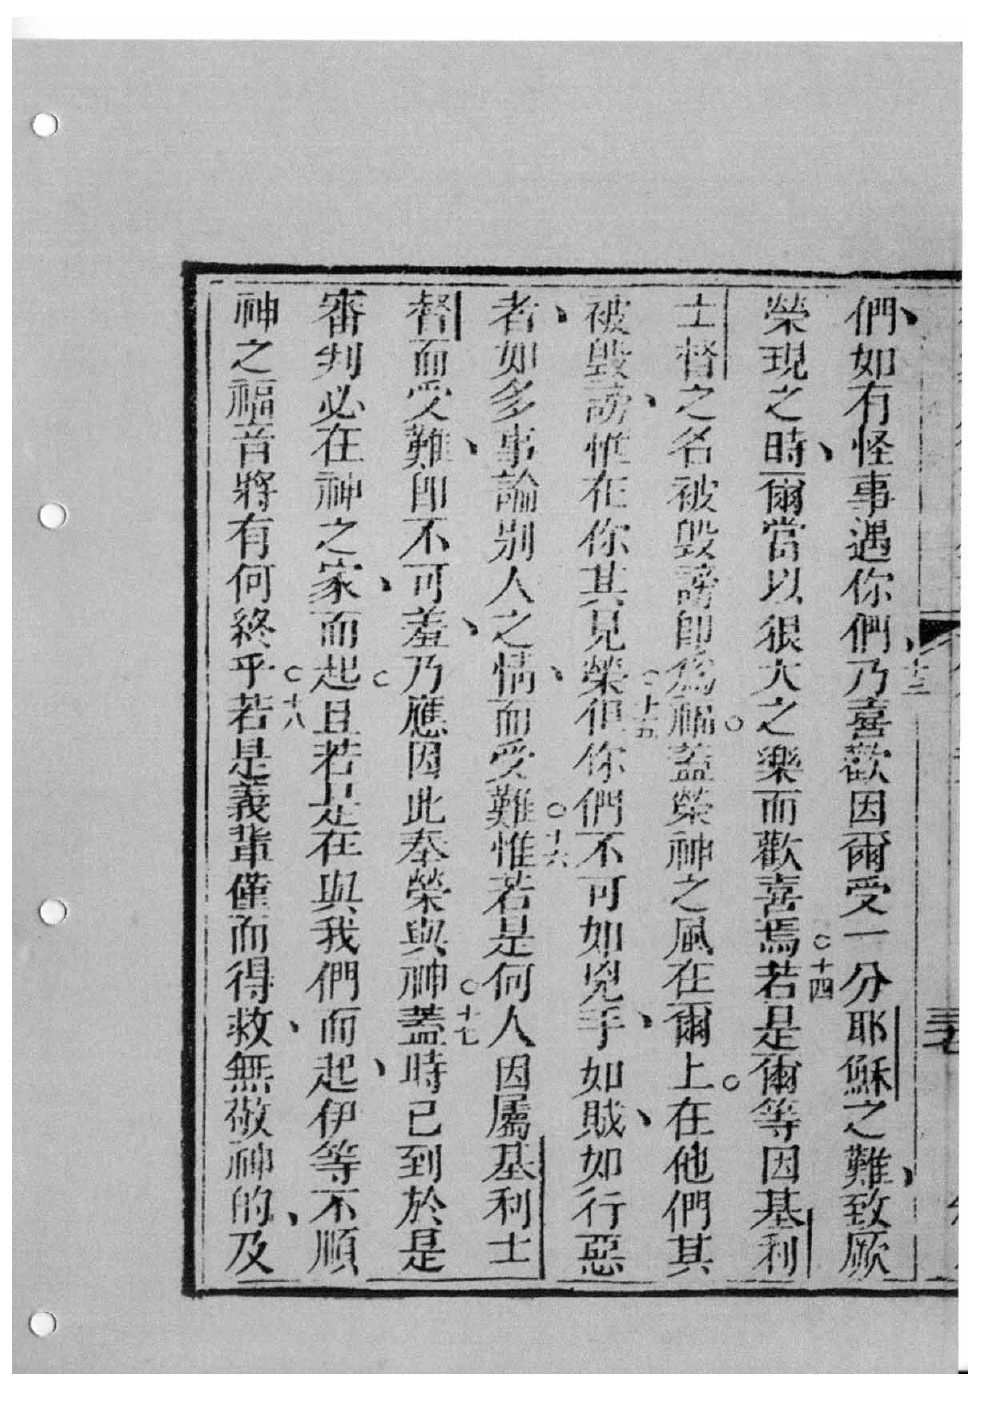 們如有怪事遇你們十三乃喜歡因爾受一分耶穌之難致厥
榮現之時爾當以狠大之樂而歡喜焉○十四若是爾等因基利
士督之名被毀謗卽爲福○蓋榮神之風在爾上○在他們其
被毀謗惟在你其見榮○十五但你們不可如兇手如賊如行惡
者如多事論別人之情而受難○十六惟若是何人因屬基利士
督而受難卽不可羞乃應因此奉榮與神○十七蓋時已到於是
審判必在神之家而起○且若是在與我們而起伊等不順
神之福音將有何終乎○十八若是義輩僅而得救無敬神的及